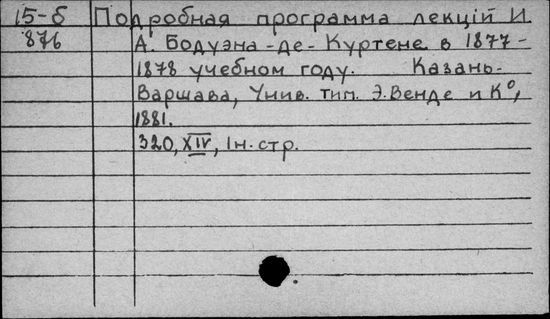 15-б Подробная программа лекцій И.
876 А. Бодуэна-де-Куртене в 1877-
1878 учебном году. Казань-
Варшава, Унив. тип. Э. Венде и К°,
1881.
320, XIV, Iн. стр.